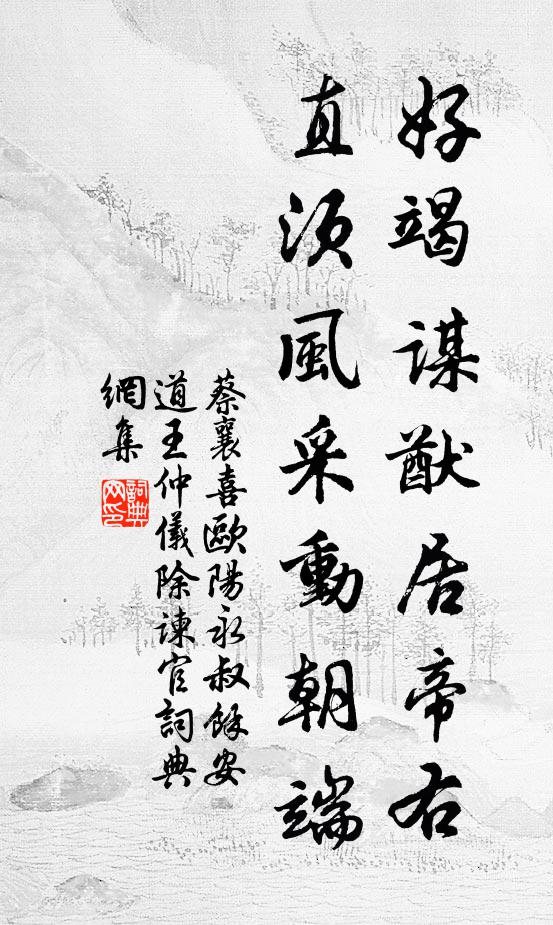 好竭謀猷居帝右
直須風采動朝端
蔡襄喜歐陽永叔餘安
道王仲儀除諫官詞典
網集
詞典網印